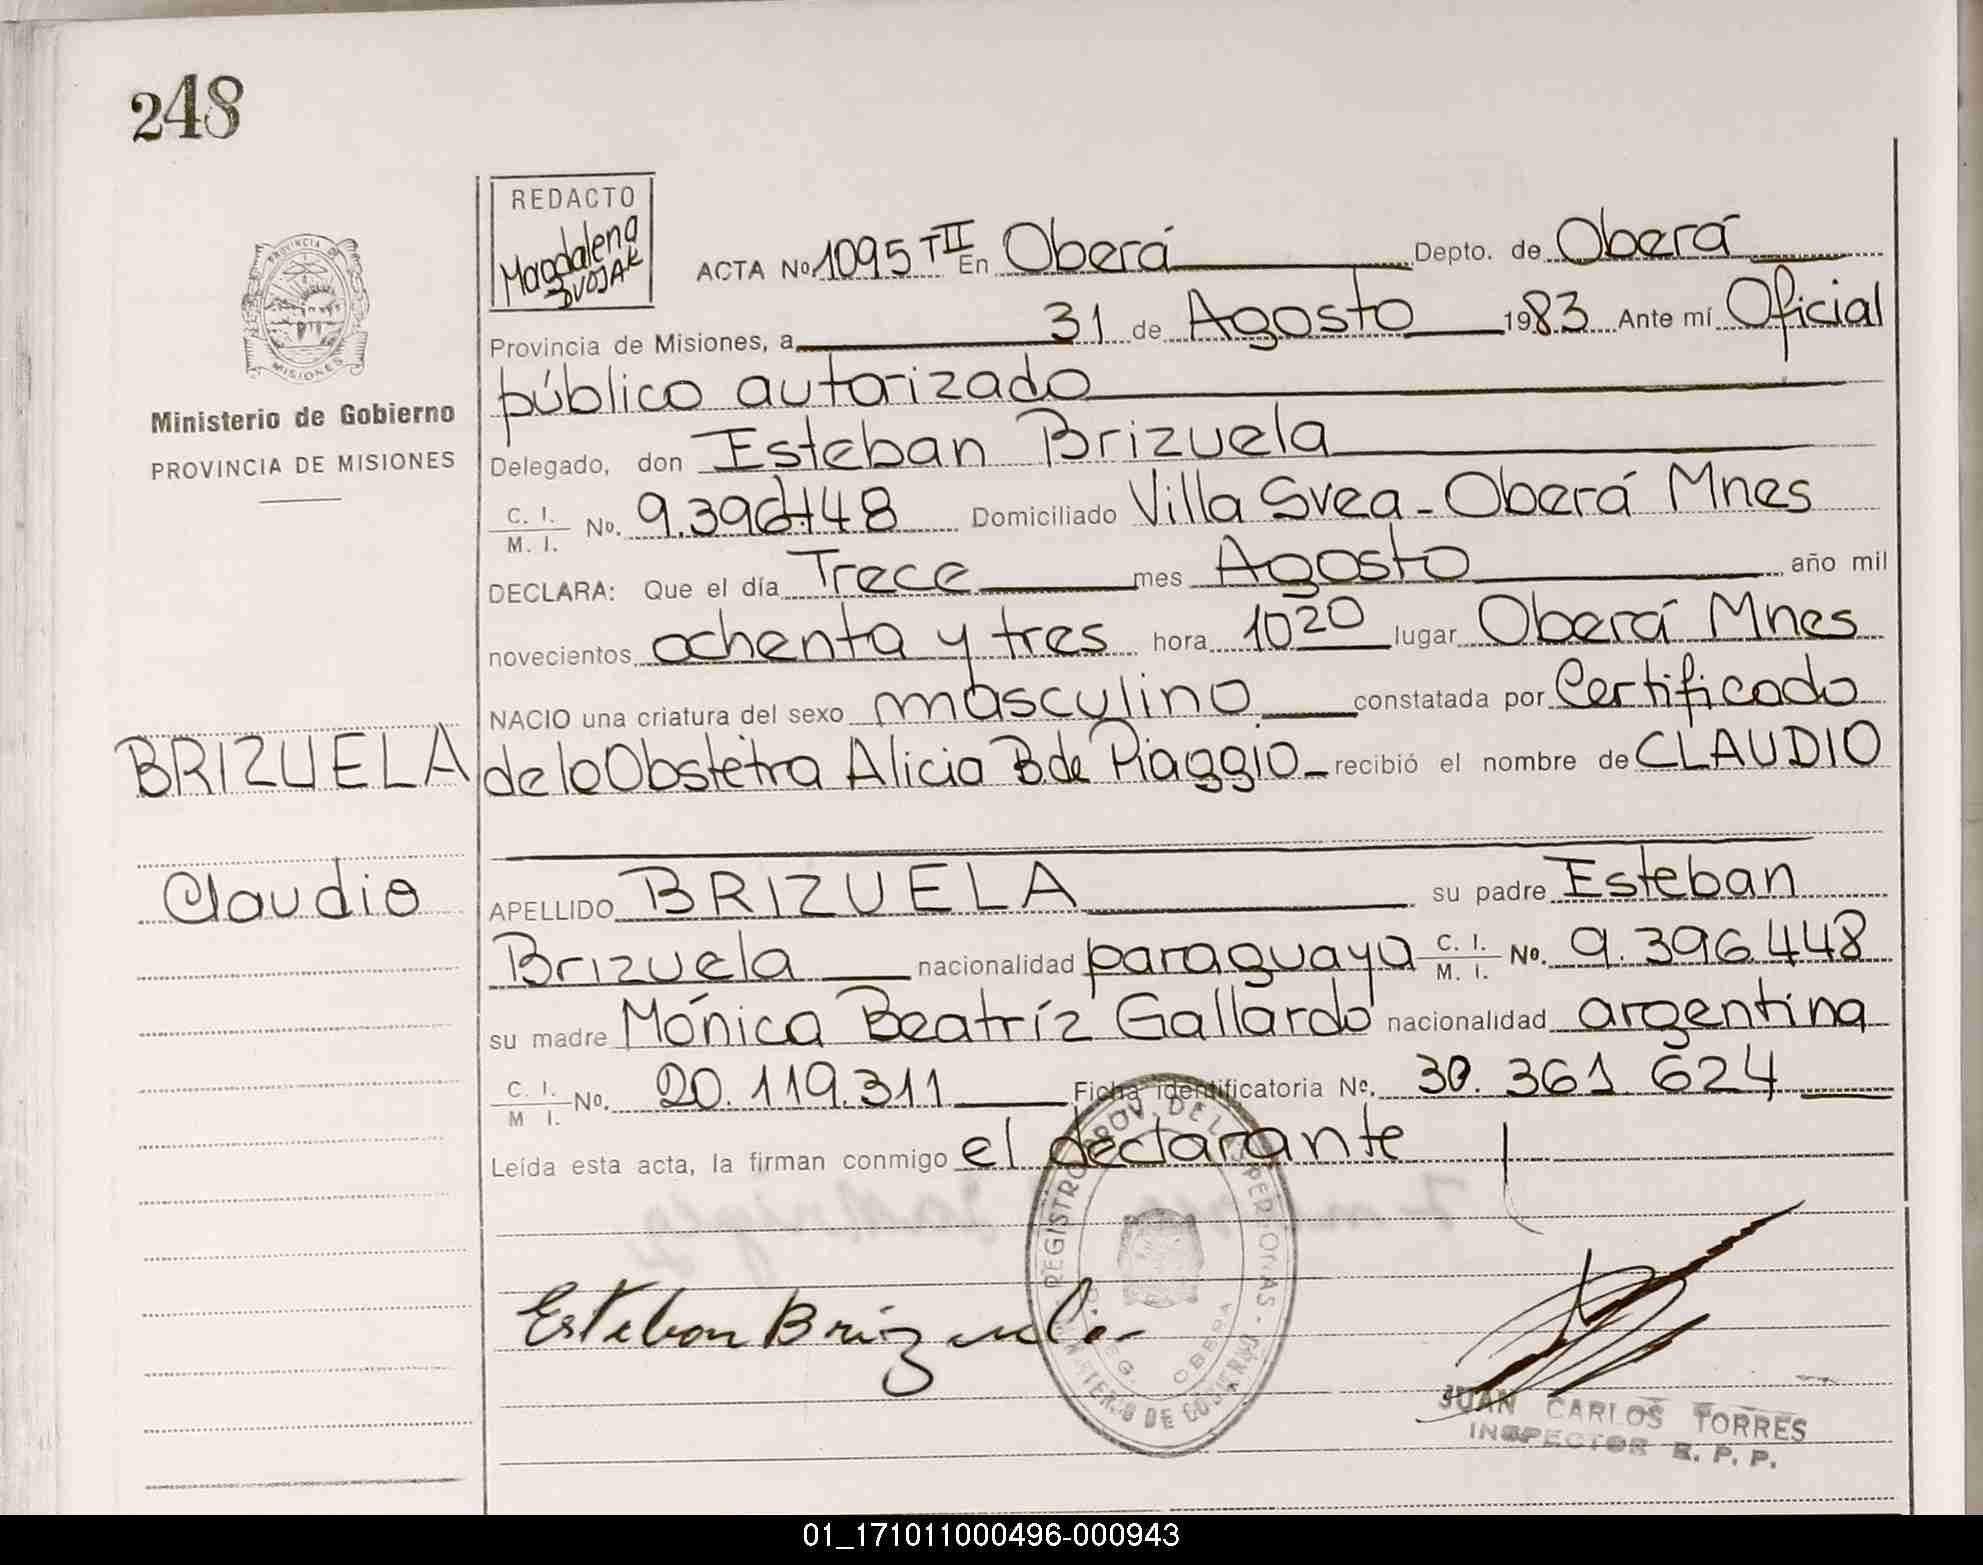 248
REDACTO
Magdalena
DVOJAK
ACTA No 1095 TII En Oberá Depto. de Oberá
Provincia de Misiones, a 31 de Agosto 1983 Ante mí Oficial
público autorizado
Delegado, don Esteban Brizuela
C. I. / M. I. No. 9.396448 Domiciliado Villa Svea - Oberá Mnes
DECLARA: Que el día Trece mes Agosto año mil
novecientos ochenta y tres hora 1020 lugar Oberá Mnes
NACIO una criatura del sexo masculino constatada por Certificado
de la Obstetra Alicia B de Piaggio recibió el nombre de CLAUDIO
APELLIDO BRIZUELA su padre Esteban
Brizuela nacionalidad paraguaya C. I. / M. I. No. 9.396.448
su madre Mónica Beatríz Gallardo nacionalidad argentina
C. I. / M I. No. 20.119.311 Ficha identificatoria No. 30.361.624
Leída esta acta, la firman conmigo el declarante
Esteban Brizuela
JUAN CARLOS TORRES
INSPECTOR R. P. P.
REGISTRO PROV. DE LAS PERSONAS -
MINISTERIO DE GOBIERNO
OBERA
PROVINCIA DE
MISIONES
Ministerio de Gobierno
PROVINCIA DE MISIONES
BRIZUELA
Claudio
01_171011000496-000943